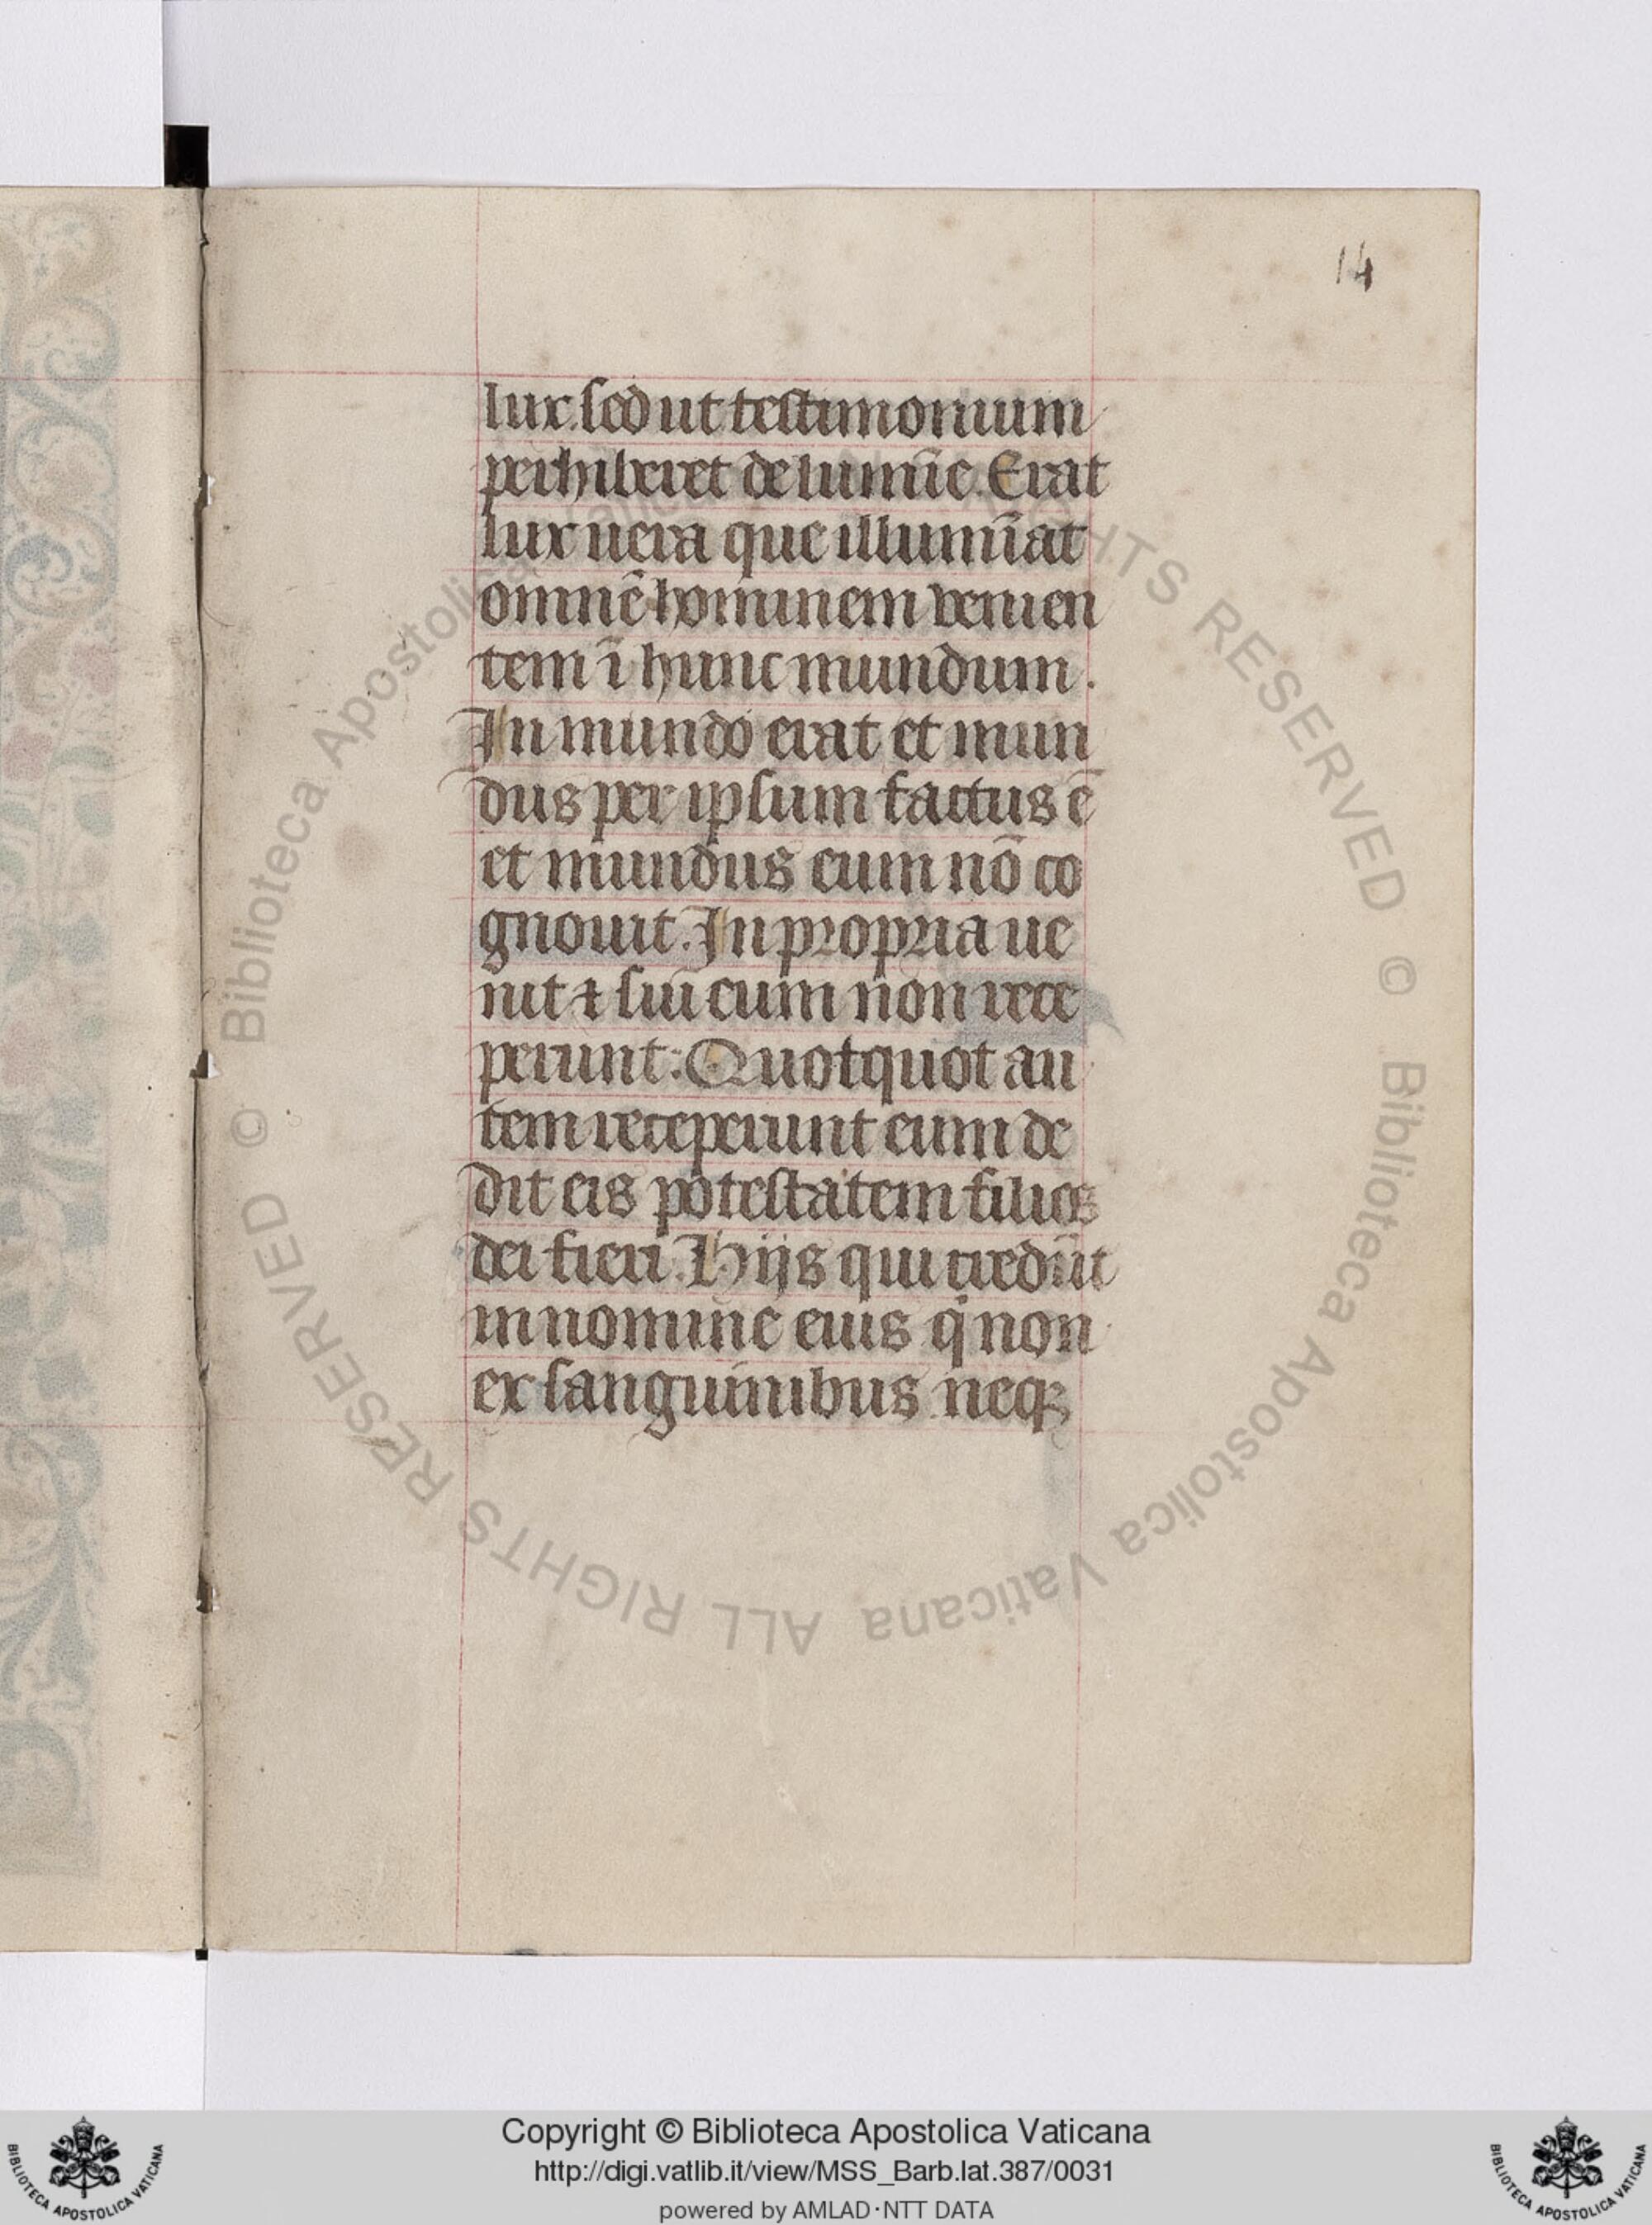 14
lux. sed ut testimonium
perhiberet de lumīe. Erat
lux uera que illumīat
omnē hominem venien
tem ī hunc mundum.
In mundo erat et mun
dus per ipsum factus ē
et mundus eum nō co
gnouit. In propria ue
nit ⁊ sui eum non rece
perunt: Quotquot au
tem receperunt eum de
dit eis potestatem filios
dei fieri. Hijs qui credūt
in nomine eius q̇ non
ex sanguinibus neqꝫ
© Biblioteca Apostolica Vaticana ALL RIGHTS RESERVED
© Biblioteca Apostolica Vaticana ALL RIGHTS RESERVED
Copyright © Biblioteca Apostolica Vaticana
http://digi.vatlib.it/view/MSS_Barb.lat.387/0031
powered by AMLAD·NTT DATA
BIBLIOTECA APOSTOLICA VATICANA
BIBLIOTECA APOSTOLICA VATICANA